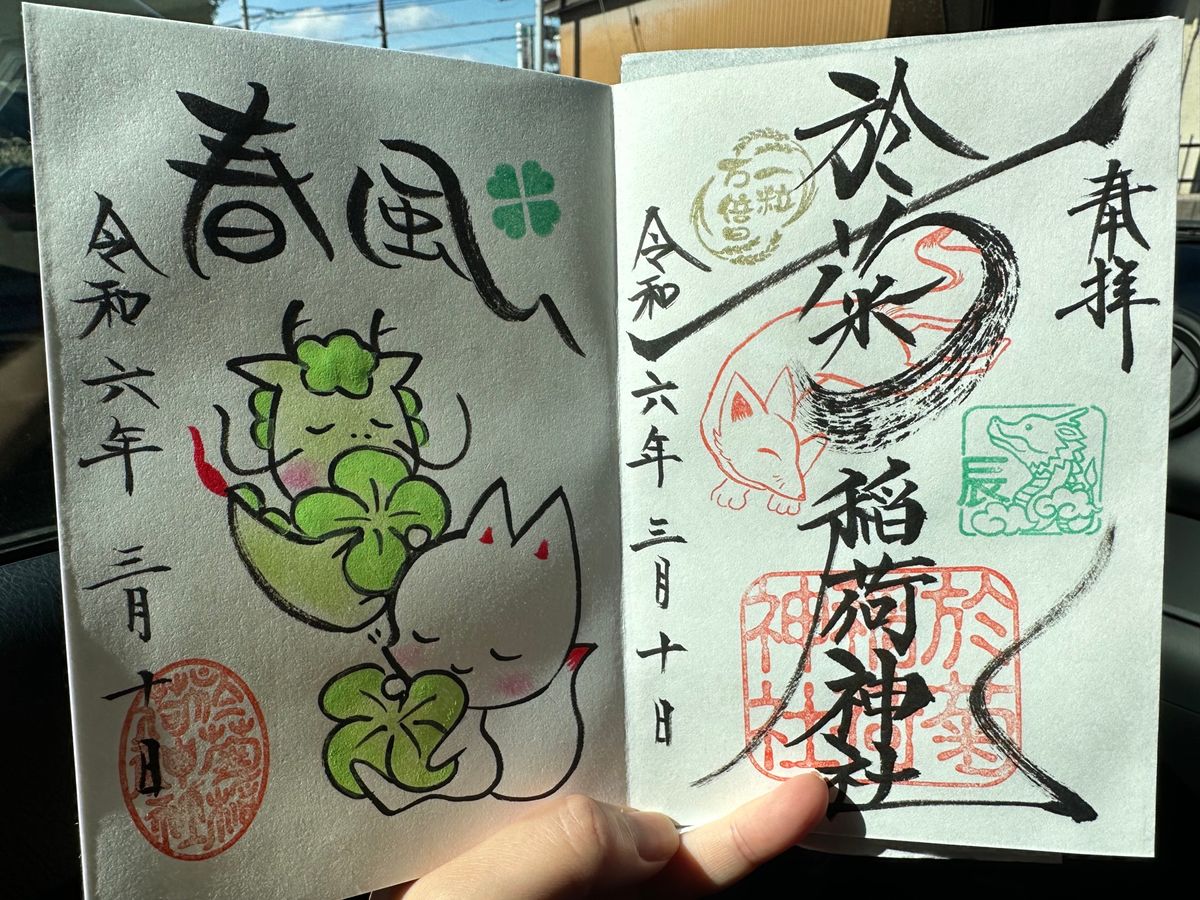 奉拝
辰
於菊稲荷神社
於菊
稲荷
神社
一粒
万倍日
令和六年三月十日
春風
令和六年三月十日